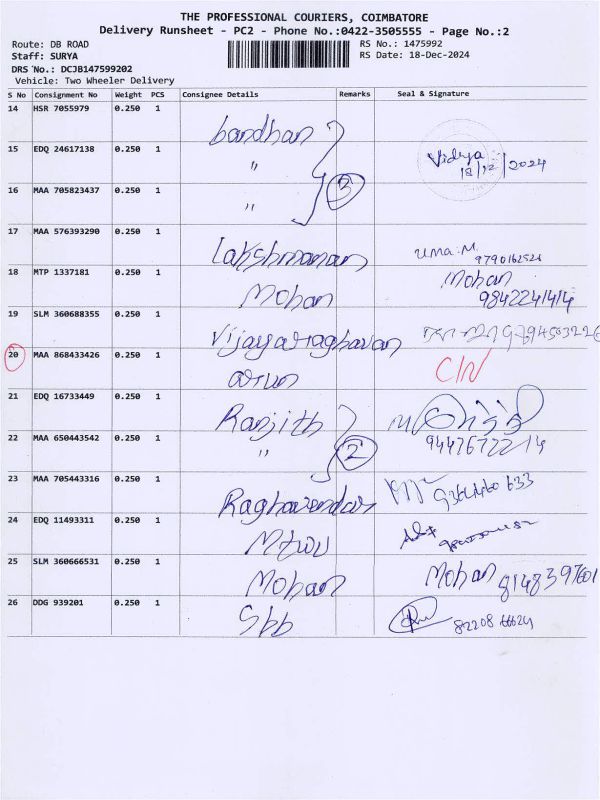 THE PROFESSIONAL COURIERS, COIMBATORE
Delivery Runsheet - PC2 - Phone No.:0422-3505555 - Page No.:2
Route: DB ROAD
Staff: SURYA
DRS No.: DCJB147599202
Vehicle: Two Wheeler Delivery
RS No.: 1475992
RS Date: 18-Dec-2024
S No Consignment No Weight PCS Consignee Details Remarks Seal & Signature
14 HSR 7055979 0.250 1 bandhan
15 EDQ 24617138 0.250 1 " Vidya 18/12/2024
16 MAA 705823437 0.250 1 " 3
17 MAA 576393290 0.250 1 Lakshmanan uma.M.
18 MTP 1337181 0.250 1 Mohan Mohan 9842241414
19 SLM 360688355 0.250 1 Vijayaraghavan
20 MAA 868433426 0.250 1 arun C/N
21 EDQ 16733449 0.250 1 Ranjith
22 MAA 650443542 0.250 1 " 2
23 MAA 705443316 0.250 1 Raghavendar
24 EDQ 11493311 0.250 1
25 SLM 360666531 0.250 1 Mohan Mohan 9148397601
26 DDG 939201 0.250 1 Sbb